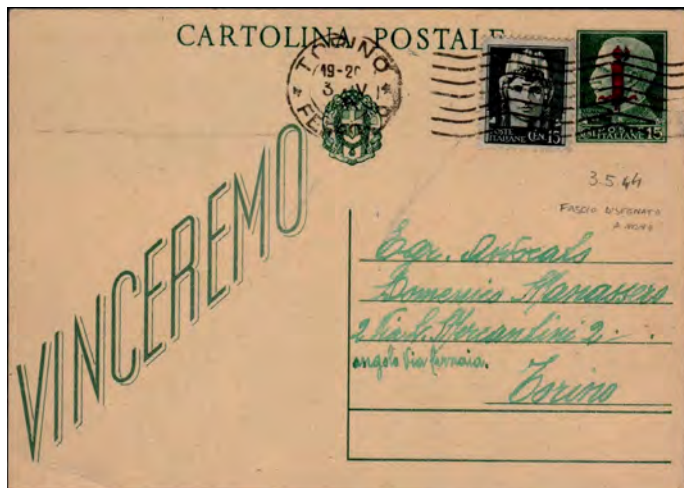 CARTOLINA POSTALE
TORINO
19-20
3 V
FERROVIA
POSTE ITALIANE CEN. 15
POSTE ITALIANE 15
3.5.44
FASCIO DISEGNATO
A MANO
VINCEREMO
Egr. Avvocato
Domenico Manassero
2 Via Mercantini 2.
angolo Via Cernaia.
Torino